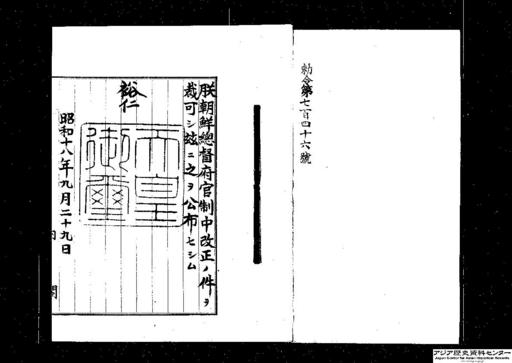 勅令第七百四十六號
朕朝鮮總督府官制中改正ノ件ヲ
裁可シ玆ニ之ヲ公布セシム
裕仁
天皇
御璽
昭和十八年九月二十九日
内閣
アジア歴史資料センター
Japan Center for Asian Historical Records